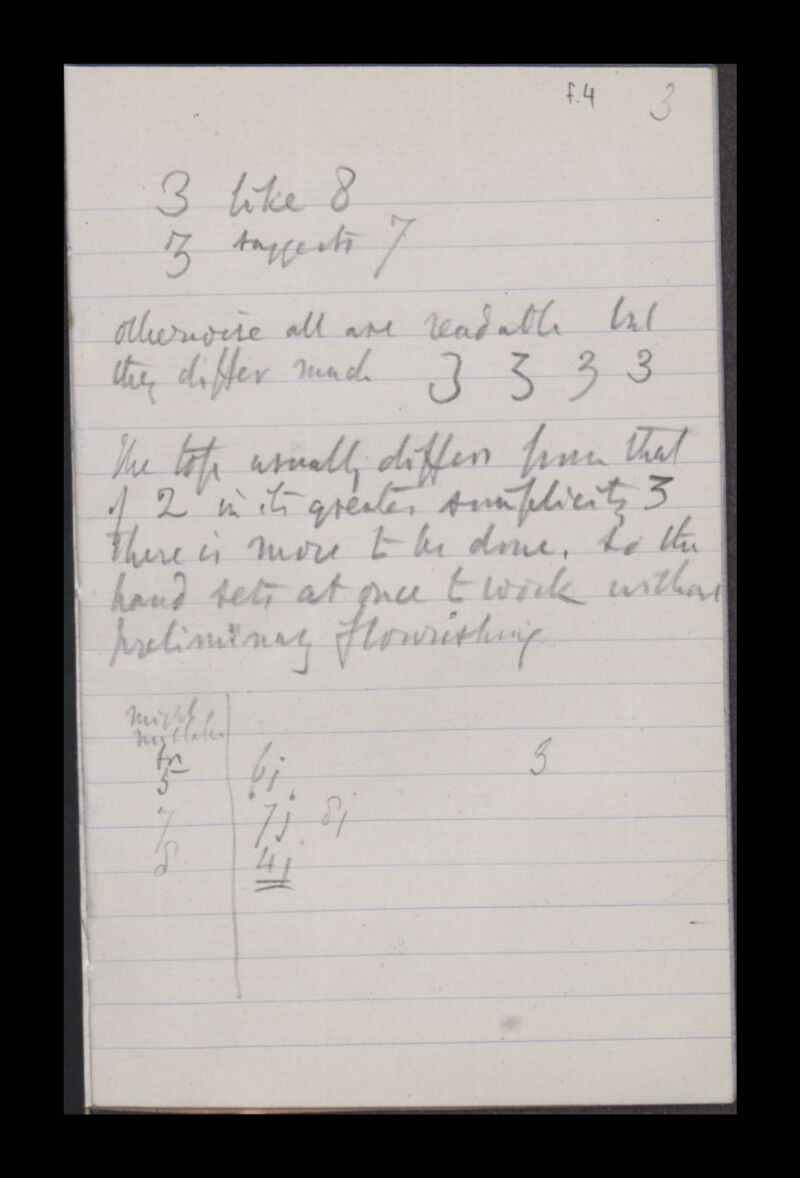 f.4 3
3 like 8
3 suggests 7
otherwise all are readable but
they differ much 3 3 3 3
The top usually differs from that
of 2 in its greater simplicity 3
There is more to be done, so the
hand sets at once to work without
preliminary flourishing
might
mistake
for
5 6j 3
7 7j 8j
8 4j